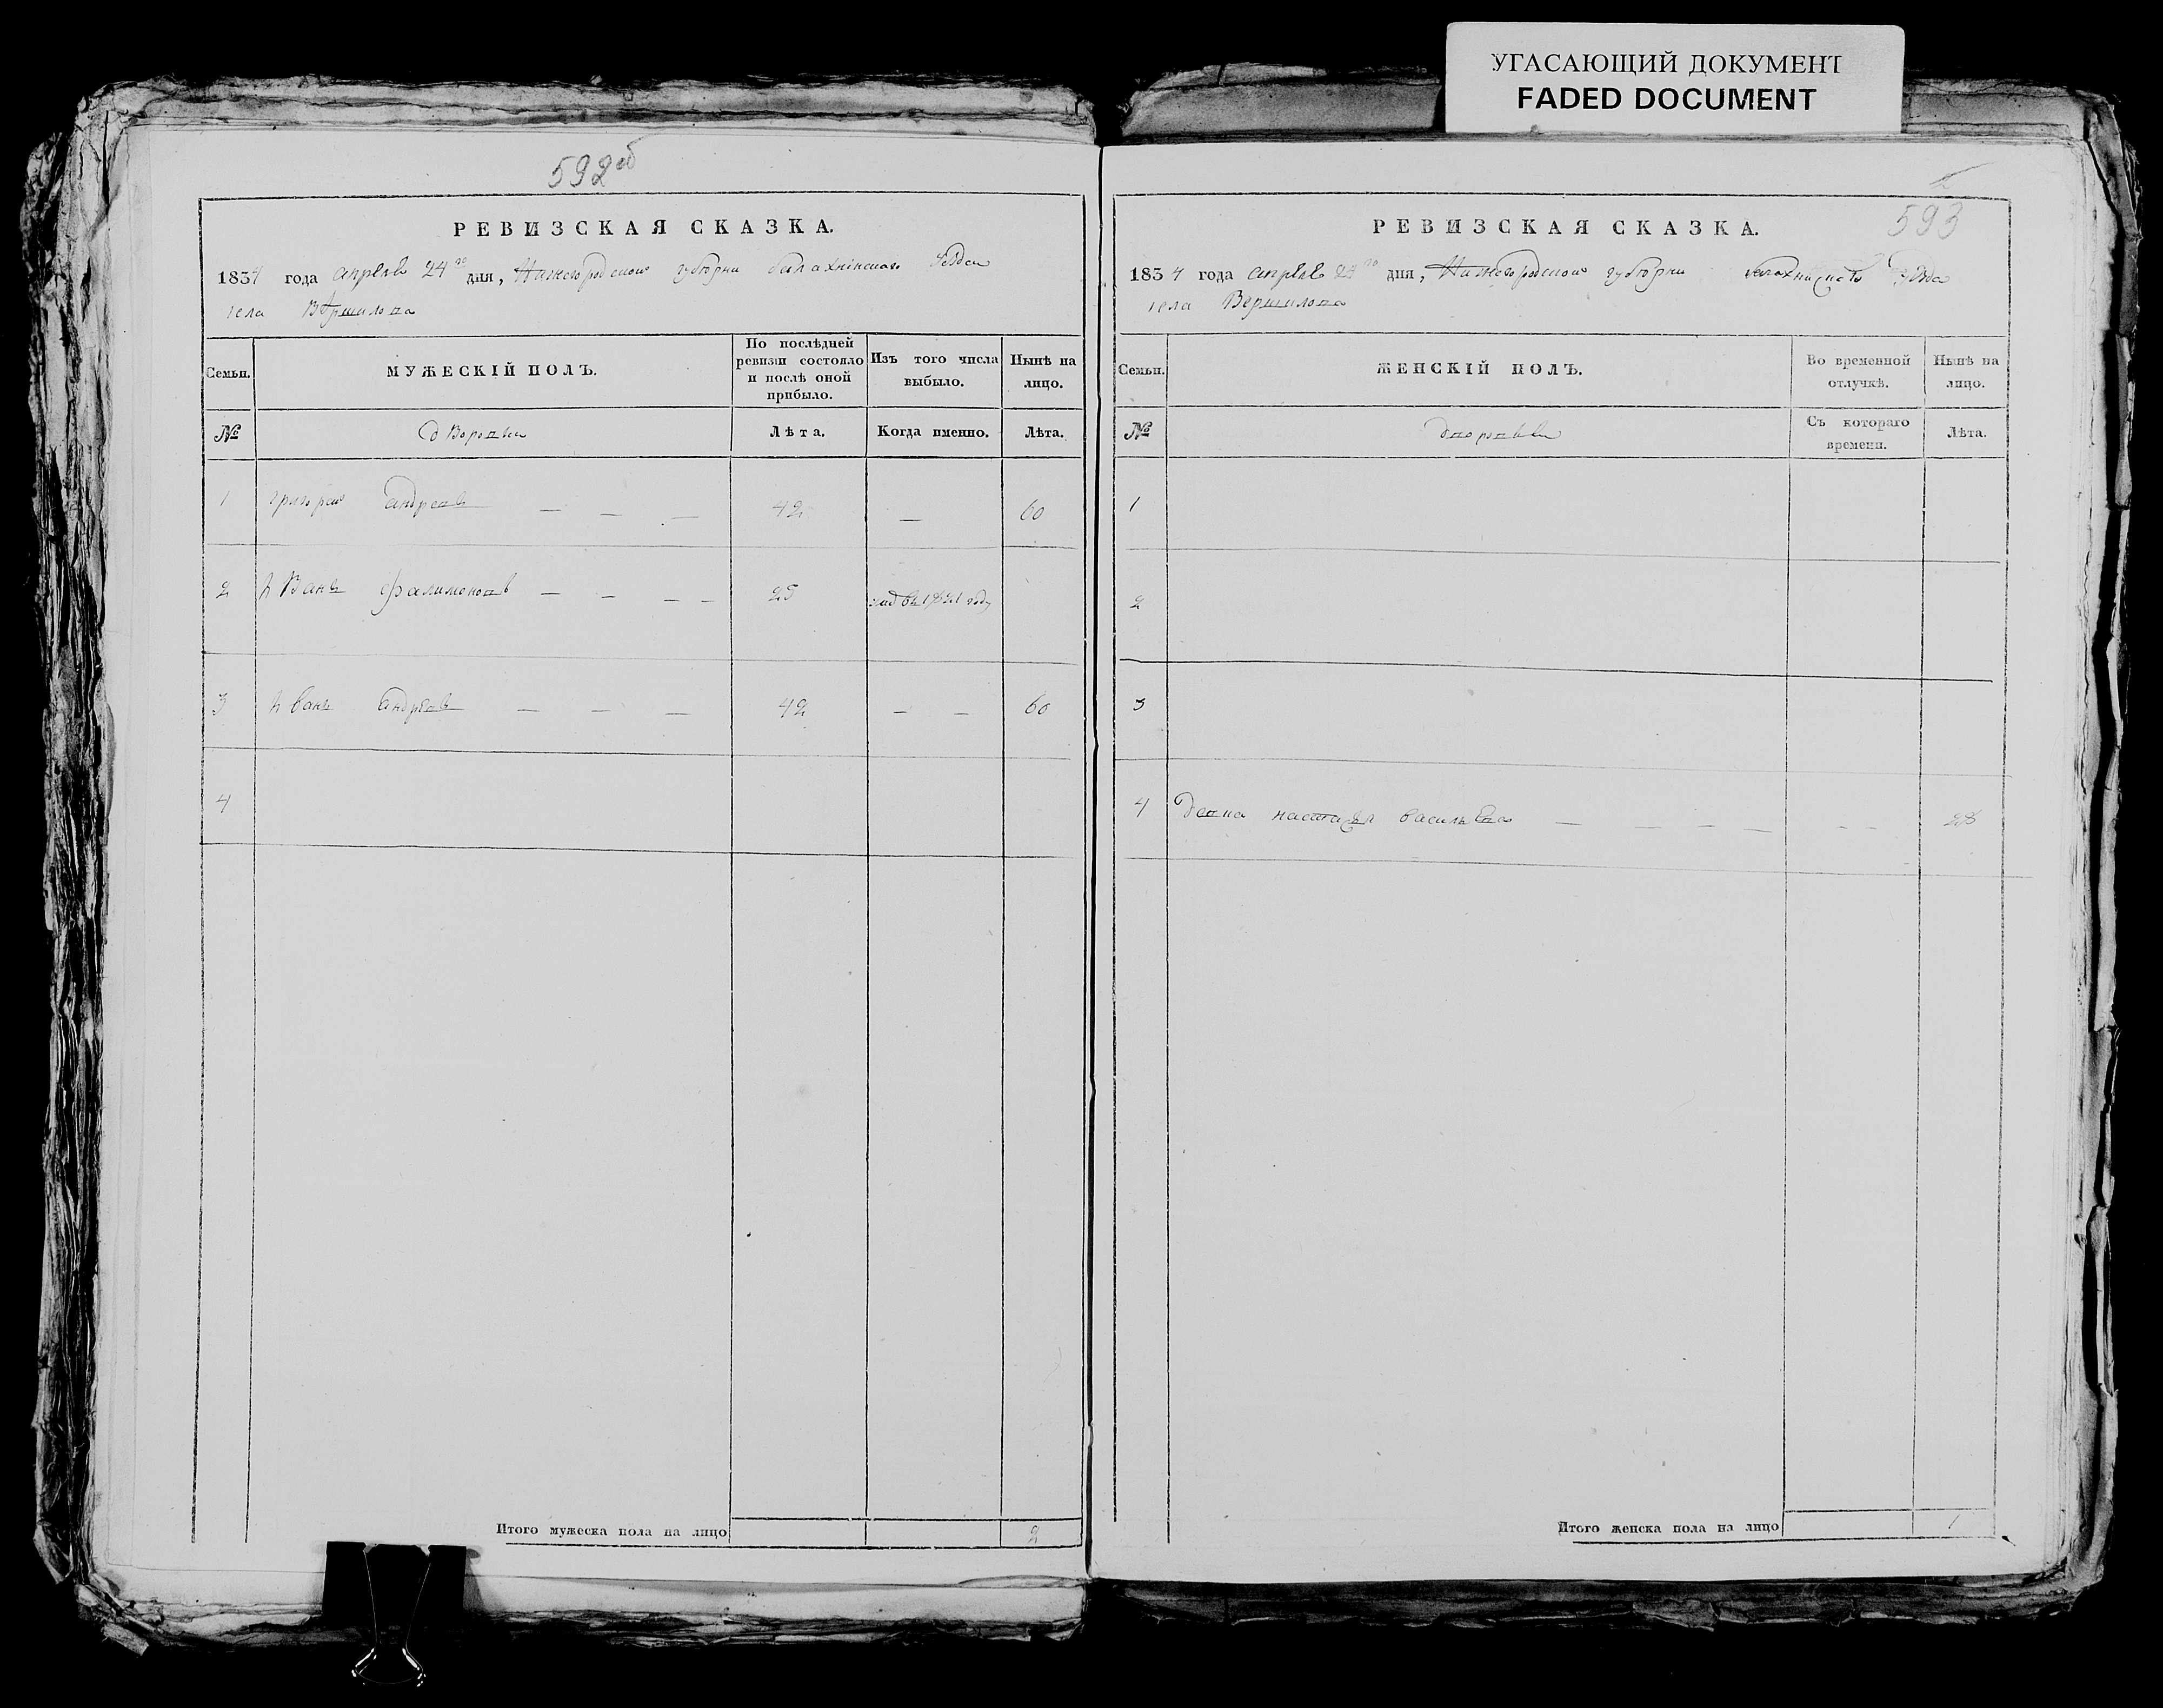 УГАСАЮЩИЙ ДОКУМЕНТ
FADED DOCUMENT
592об
РЕВИЗСКАЯ СКАЗКА.
1834 года апреля 24го дня, Нижегородской губерни балахнинскаго уезда
села Вершилова
Семьи.
МУЖЕСКІЙ ПОЛЪ.
По послѣдней ревизіи состояло и послѣ оной прибыло.
Изъ того числа выбыло.
Нынѣ на лицо.
№
дворовыи
Лѣта.
Когда именно.
Лѣта.
1 григореи андреевъ — — — 42 — 60
2 иванъ филимоновъ — — — — 25 въ 1821 году
3 иванъ андреевъ — — — 42 — — 60
4
Итого мужеска пола на лицо 2
593
РЕВИЗСКАЯ СКАЗКА.
1834 года апреля 24го дня, Нижегородской губерни уезда
села Вершилова
Семьи.
ЖЕНСКІЙ ПОЛЪ.
Во временной отлучкѣ.
Нынѣ на лицо.
№
дворовыи
Съ котораго времени.
Лѣта.
1
2
3
4 васильева — — — — — — 28
Итого женска пола на лицо 1